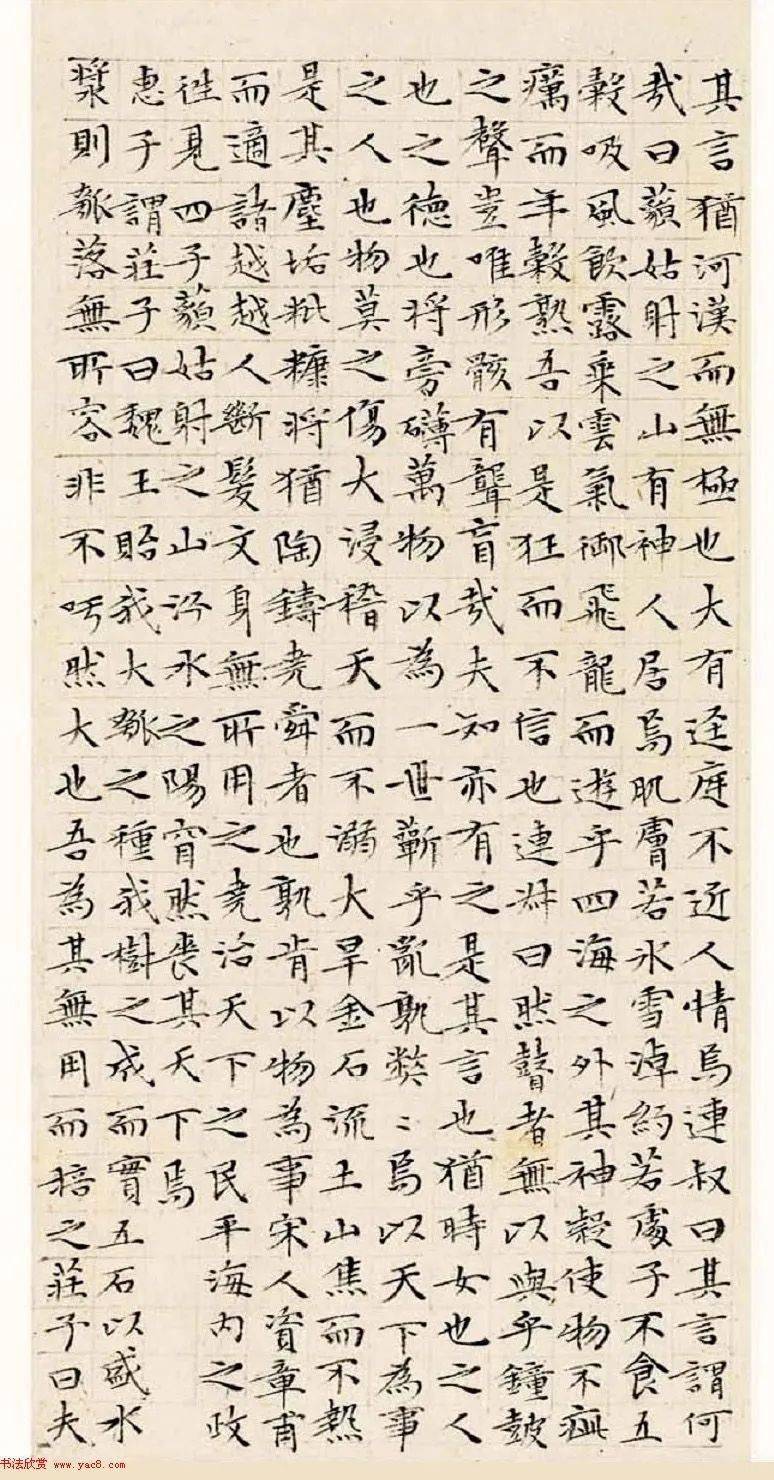 其言猶河漢而無極也大有逕庭不近人情焉連叔曰其言謂何
哉曰藐姑射之山有神人居焉肌膚若氷雪淖約若處子不食五
穀吸風飲露乗雲氣御飛龍而遊乎四海之外其神凝使物不疵
癘而年穀熟吾以是狂而不信也連叔曰然瞽者無以與乎鐘鼓
之聲豈唯形骸有聾盲哉夫知亦有之是其言也猶時女也之人
也之德也将旁礴萬物以為一世蘄乎亂孰弊〻焉以天下為事
之人也物莫之傷大浸稽天而不溺大旱金石流土山焦而不熱
是其塵垢粃糠将猶陶鑄堯舜者也孰肯以物為事宋人資章甫
而適諸越越人斷髮文身無所用之堯治天下之民平海内之政
往見四子藐姑射之山汾水之陽窅然喪其天下焉
惠子謂莊子曰魏王貽我大瓠之種我樹之成而實五石以盛水
漿則瓠落無所容非不呺然大也吾為其無用而掊之莊子曰夫
书法欣赏 www.yac8.com